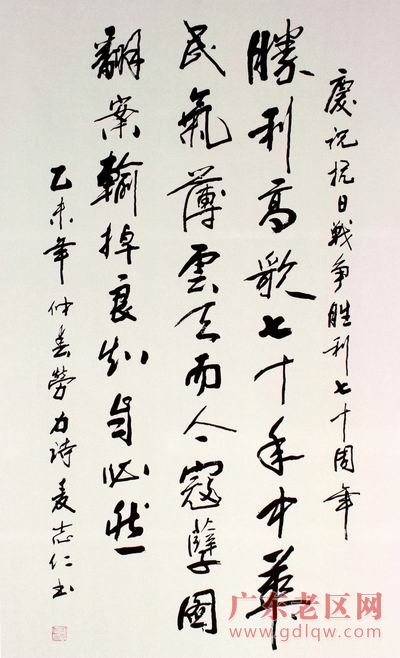 慶祝抗日戰爭胜利七十周年
勝利高歌七十年中華
民氣薄雲天而今寇孽圖
翻案輸掉良知自必然
乙未年仲春勞力詩志仁书
广东老区网
www.gdlqw.com